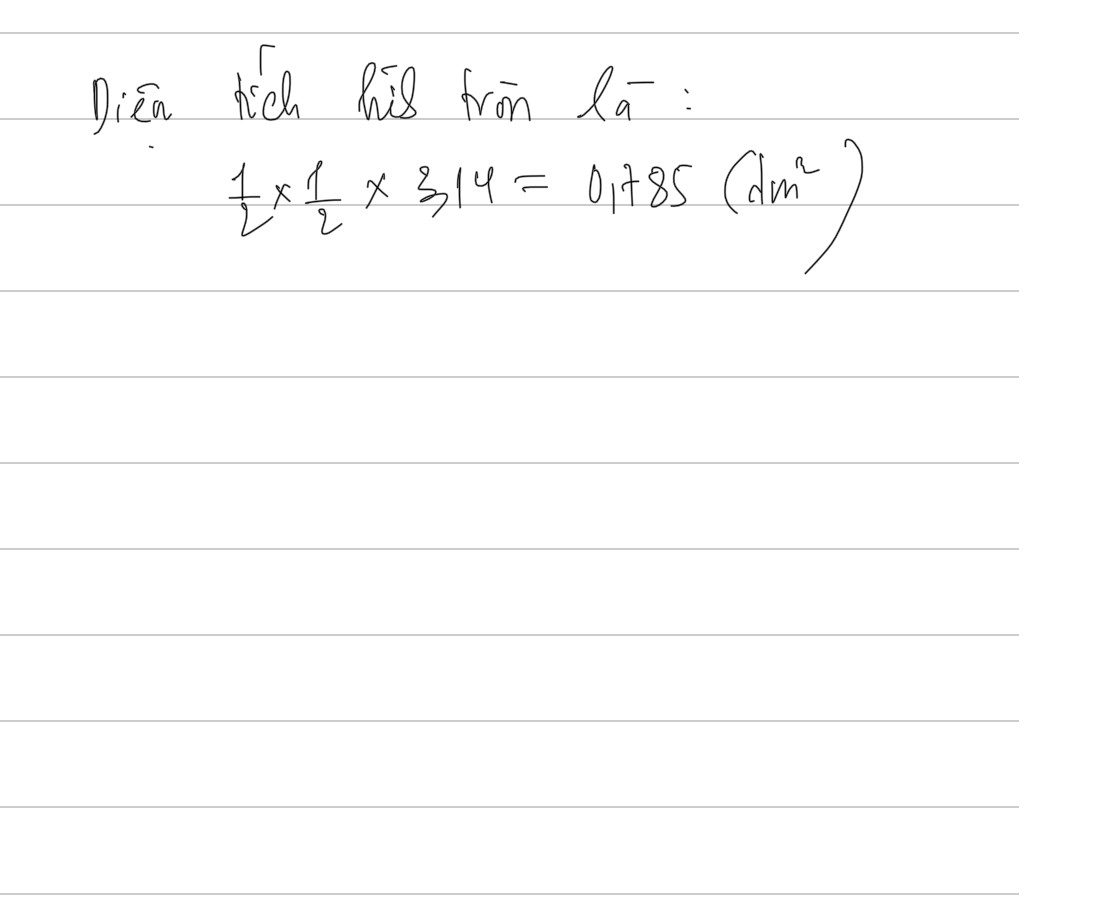 Diện tích hình tròn là :
1/2 × 1/2 × 3,14 = 0,785 (dm²)